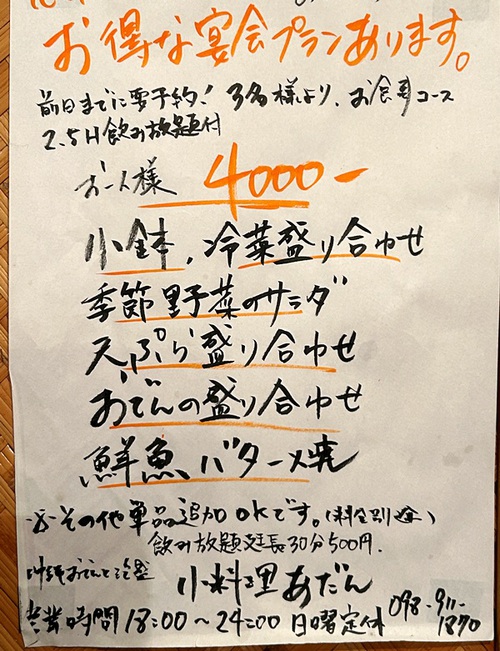 お得な宴会プランあります。
前日までに要予約! 3名様より、お食事コース
2.5H飲み放題付
お一人様 4000-
小鉢、冷菜盛り合わせ
季節野菜のサラダ
天ぷら盛り合わせ
おでんの盛り合わせ
鮮魚バター焼
その他単品追加OKです。(料金別途)
飲み放題延長30分500円.
小料理あだん
営業時間 18:00〜24:00 日曜定休 098-911-1870